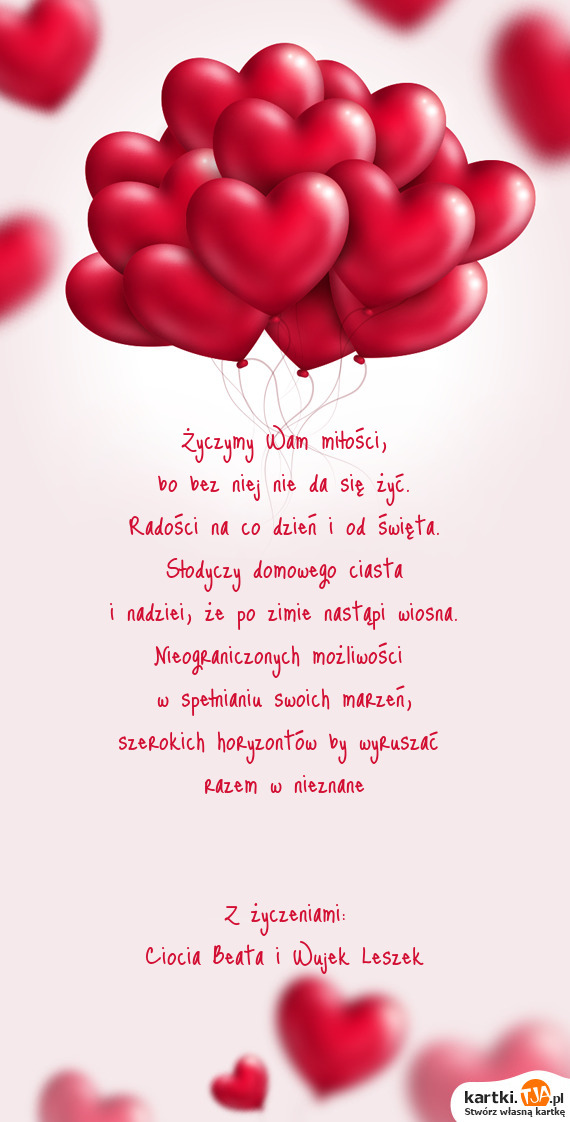 Życzymy Wam miłości,
bo bez niej nie da się żyć.
Radości na co dzień i od święta.
Słodyczy domowego ciasta
i nadziei, że po zimie nastąpi wiosna.
Nieograniczonych możliwości
w spełnianiu swoich marzeń,
szerokich horyzontów by wyruszać
razem w nieznane
Z życzeniami:
Ciocia Beata i Wujek Leszek
kartki.TJA.pl
Stwórz własną kartkę